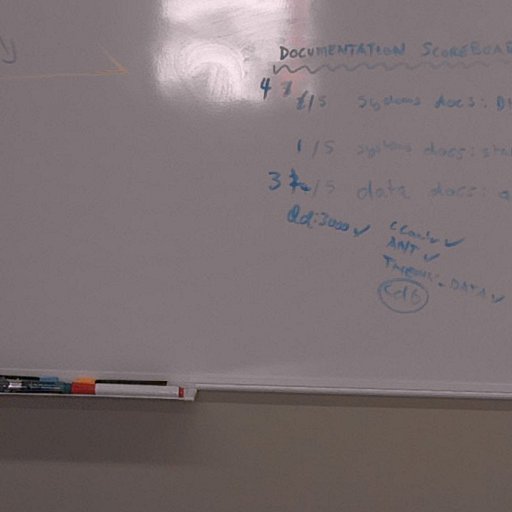 DOCUMENTATION SCOREBOA
4 /5 systems docs:
1/5 systems docs: sta
3 /5 data docs:
dd:3000 ✓
ANT ✓
DATA ✓
cd6